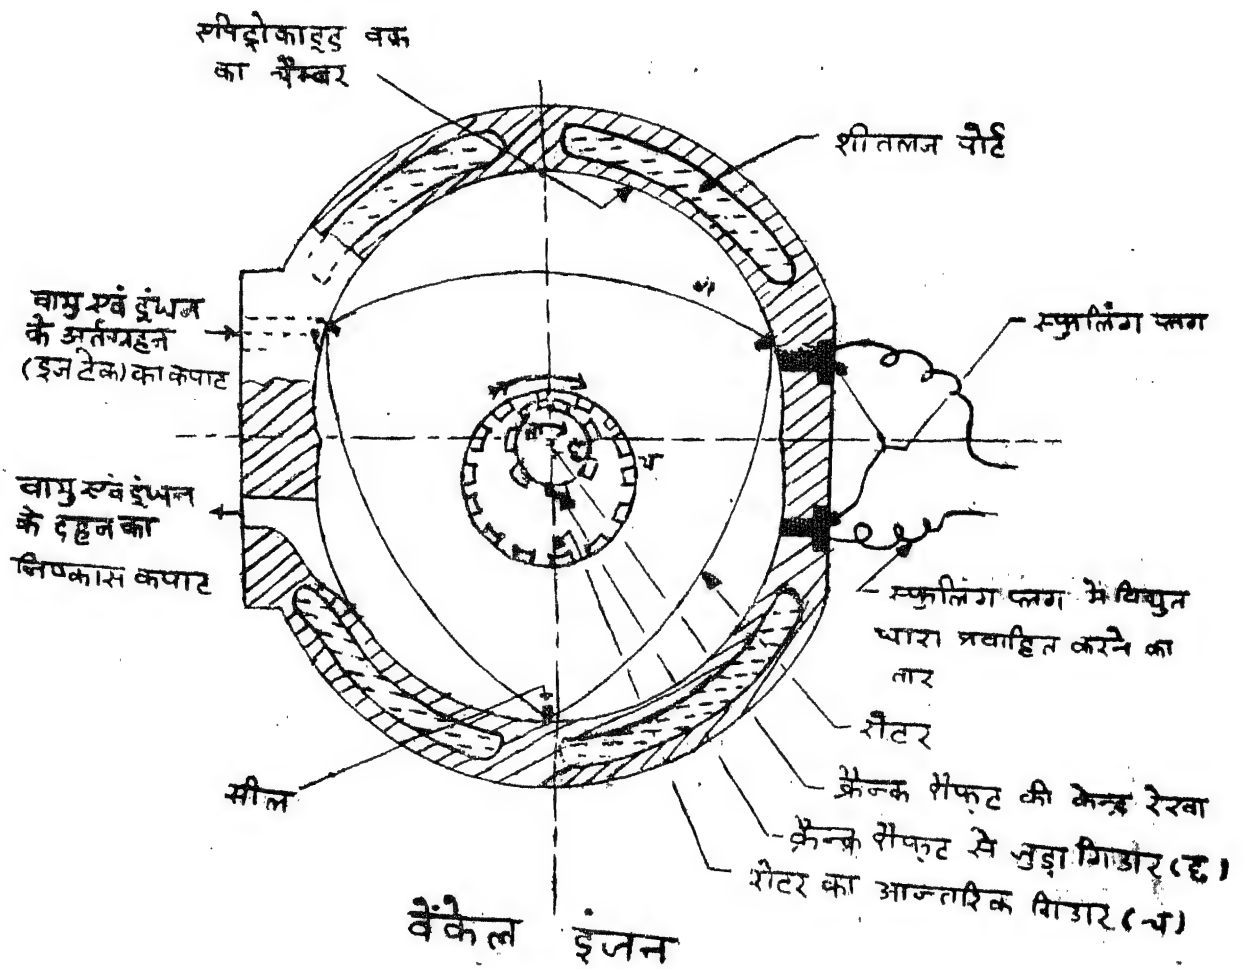 एपिट्रोकाइड वक्र
का चैम्बर
शीतलन पोर्ट
वायु एवं इंधन
के अर्तग्रहन
(इनटेक) का कपाट
स्फुलिंग प्लग
च
वायु एवं इंधन
के दहन का
निष्कास कपाट
स्फुलिंग प्लग मे विद्युत
धारा प्रवाहित करने का
तार
रोटर
सील
क्रैन्क शैफ्ट की केन्द्र रेखा
क्रैन्क शैफ्ट से जुड़ा गिडार (छ)
रोटर का आन्तरिक गिडार (च)
वेंकेल इंजन